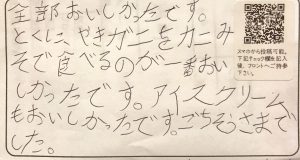 全部おいしかったです。
とくに、やきガニをカニみ
そで食べるのが一番おい
しかったです。アイスクリーム
もおいしかったです。ごちそうさまで
した。
スマホから投稿可能。
下記チェック欄を記入
後、フロントへご持参
下さい。